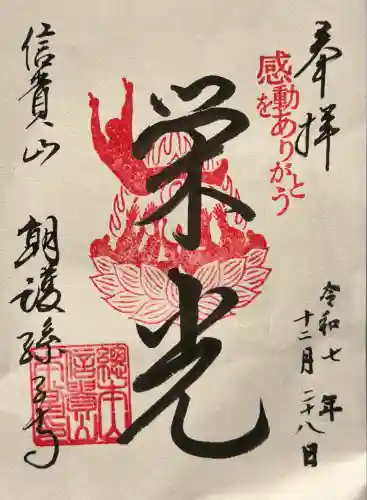 奉拝
感動ありがとう
を
令和七年
十二月二十八日
栄光
信貴山
朝護孫子寺
總本山
信貴山